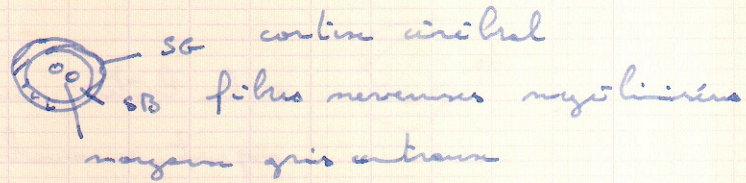 SG cortex cérébral
SB fibres nerveuses myélinisées
noyaux gris centraux